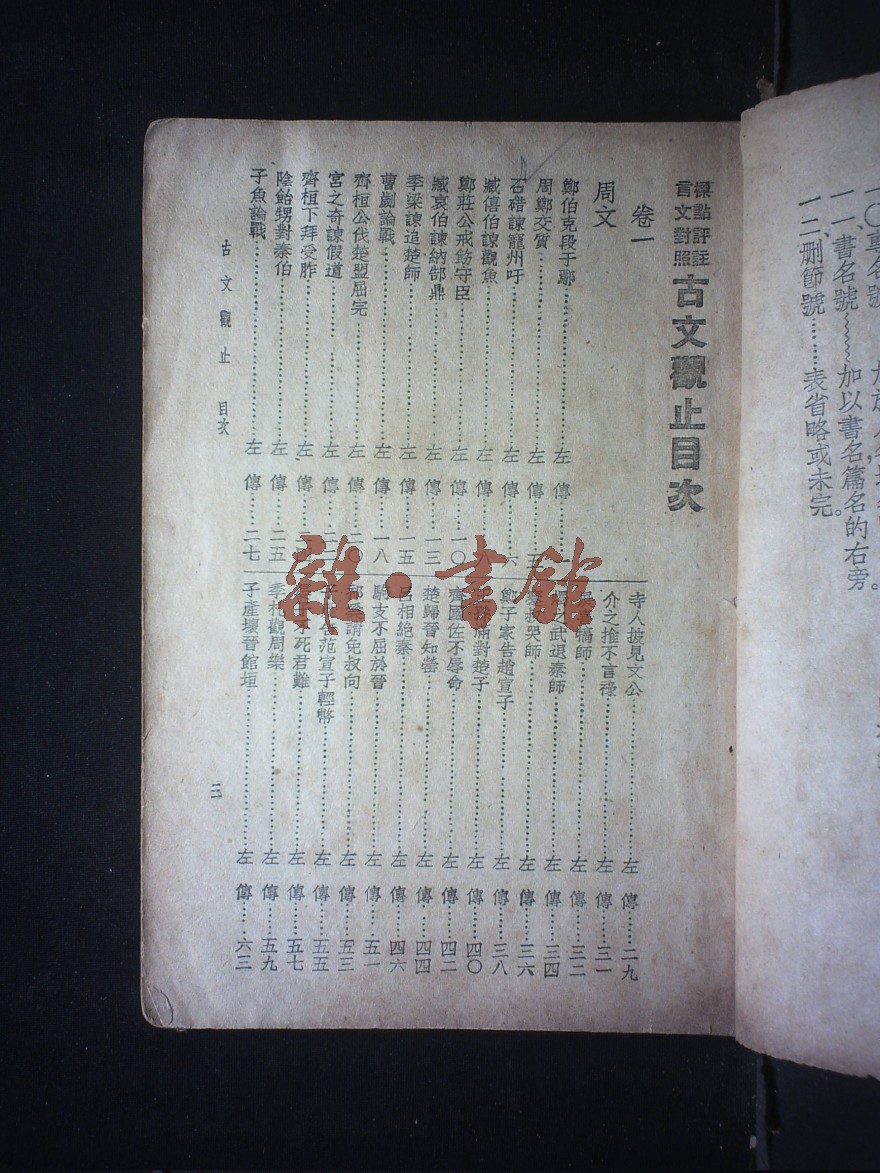 一一、書名號﹏﹏加以書名篇名的右旁。
一二、刪節號……表省略或未完。
標點評註
言文對照
古文觀止目次
卷一
周文
鄭伯克段于鄢……左傳
周鄭交質……左傳……五
石碏諫寵州吁……左傳……六
臧僖伯諫觀魚……左傳
鄭莊公戒飭守臣……左傳……一〇
臧哀伯諫納郜鼎……左傳……一三
季梁諫追楚師……左傳……一五
曹劌論戰……左傳……一八
齊桓公伐楚盟屈完……左傳……二〇
宮之奇諫假道……左傳……二二
齊桓下拜受胙……左傳
陰飴甥對秦伯……左傳……二五
子魚論戰……左傳……二七
寺人披見文公……左傳……二九
介之推不言祿……左傳……三一
犒師……左傳……三二
之武退秦師……左傳……三四
哭師……左傳……三六
鄭子家告趙宣子……左傳……三八
滿對楚子……左傳……四〇
齊國佐不辱命……左傳……四二
楚歸晉知罃……左傳……四四
呂相絕秦……左傳……四六
駒支不屈於晉……左傳……五一
祁奚請免叔向……左傳……五三
子產告范宣子輕幣……左傳……五五
不死君難……左傳……五七
季札觀周樂……左傳……五九
子產壞晉館垣……左傳……六三
古文觀止 目次
三
雜·書館